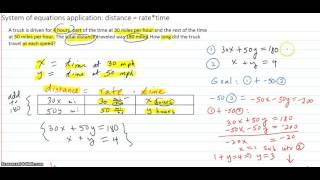 System of equations application: distance = rate*time
A truck is driven for 4 hours, part of the time at 30 miles per hour and the rest of the time
at 50 miles per hour. The total distance traveled was 180 miles. How long did the truck
travel at each speed?
x = time at 30 mph
y = time at 50 mph
distance = rate · time
add to 180
30x mi
x hours
50y mi
y hours
{ 30x + 50y = 180
x + y = 4
① 30x + 50y = 180
② x + y = 4
Goal: ① + -50②
-50② = -50x - 50y = -200
① + -50②:
30x + 50y = 180
-50x - 50y = -200
-20x = -20
x = 1 sub into ②
1 + y = 4 → y = 3